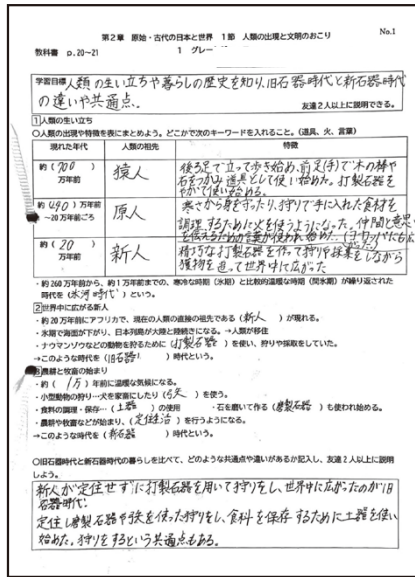 No.1
第2章 原始・古代の日本と世界 1節 人類の出現と文明のおこり
教科書 p.20~21
1 グレー
学習目標 人類の生い立ちや暮らしの歴史を知り、旧石器時代と新石器時代
の違いや共通点。
友達2人以上に説明できる。
1 人類の生い立ち
○人類の出現や特徴を表にまとめよう。どこかで次のキーワードを入れること。(道具、火、言葉)
現れた年代 人類の祖先 特徴
約(700)万年前 猿人 後ろ足で立って歩き始め、前足(手)で木の棒や
石をつかみ道具として使い始めた。打製石器を
やがて使い始める。
約 万年前~20万年前ごろ 原人 寒さから身を守ったり、狩りで手に入れた食材を
調理するために火を使うようになった。仲間と意
を伝えるための言葉が使われ始めた。
約(20)万年前 新人 打製石器を作って狩りや採集をしながら
獲物を追って世界中に広がった
・約260万年前から、約1万年前までの、寒冷な時期(氷期)と比較的温暖な時期(間氷期)が繰り返された
時代を(氷河時代)という。
2 世界中に広がる新人
・約20万年前にアフリカで、現在の人類の直接の祖先である(新人)が現れる。
・氷期で海面が下がり、日本列島が大陸と陸続きになる。→人類が移住
・ナウマンゾウなどの動物を狩るために(打製石器)を使い、狩りや採取をしていた。
→このような時代を(旧石器)時代という。
3 農耕と牧畜の始まり
・約(1万)年前に温暖な気候になる。
・小型動物の狩り…犬を家畜にしたり(弓矢)を使う。
・食料の調理・保存…(土器)の使用 ・石を磨いて作る(磨製石器)も使われ始める。
・農耕や牧畜などが始まり、(定住生活)を行うようになる。
→このような時代を(新石器)時代という。
○旧石器時代と新石器時代の暮らしを比べて、どのような共通点や違いがあるか記入し、友達2人以上に説明
しよう。
新人が定住せずに打製石器を用いて狩りをし、世界中に広がったのが旧
石器時代。
定住し磨製石器や弓矢を使った狩りをし、食料を保存するために土器を使い
始めた。狩りをするという共通点もある。